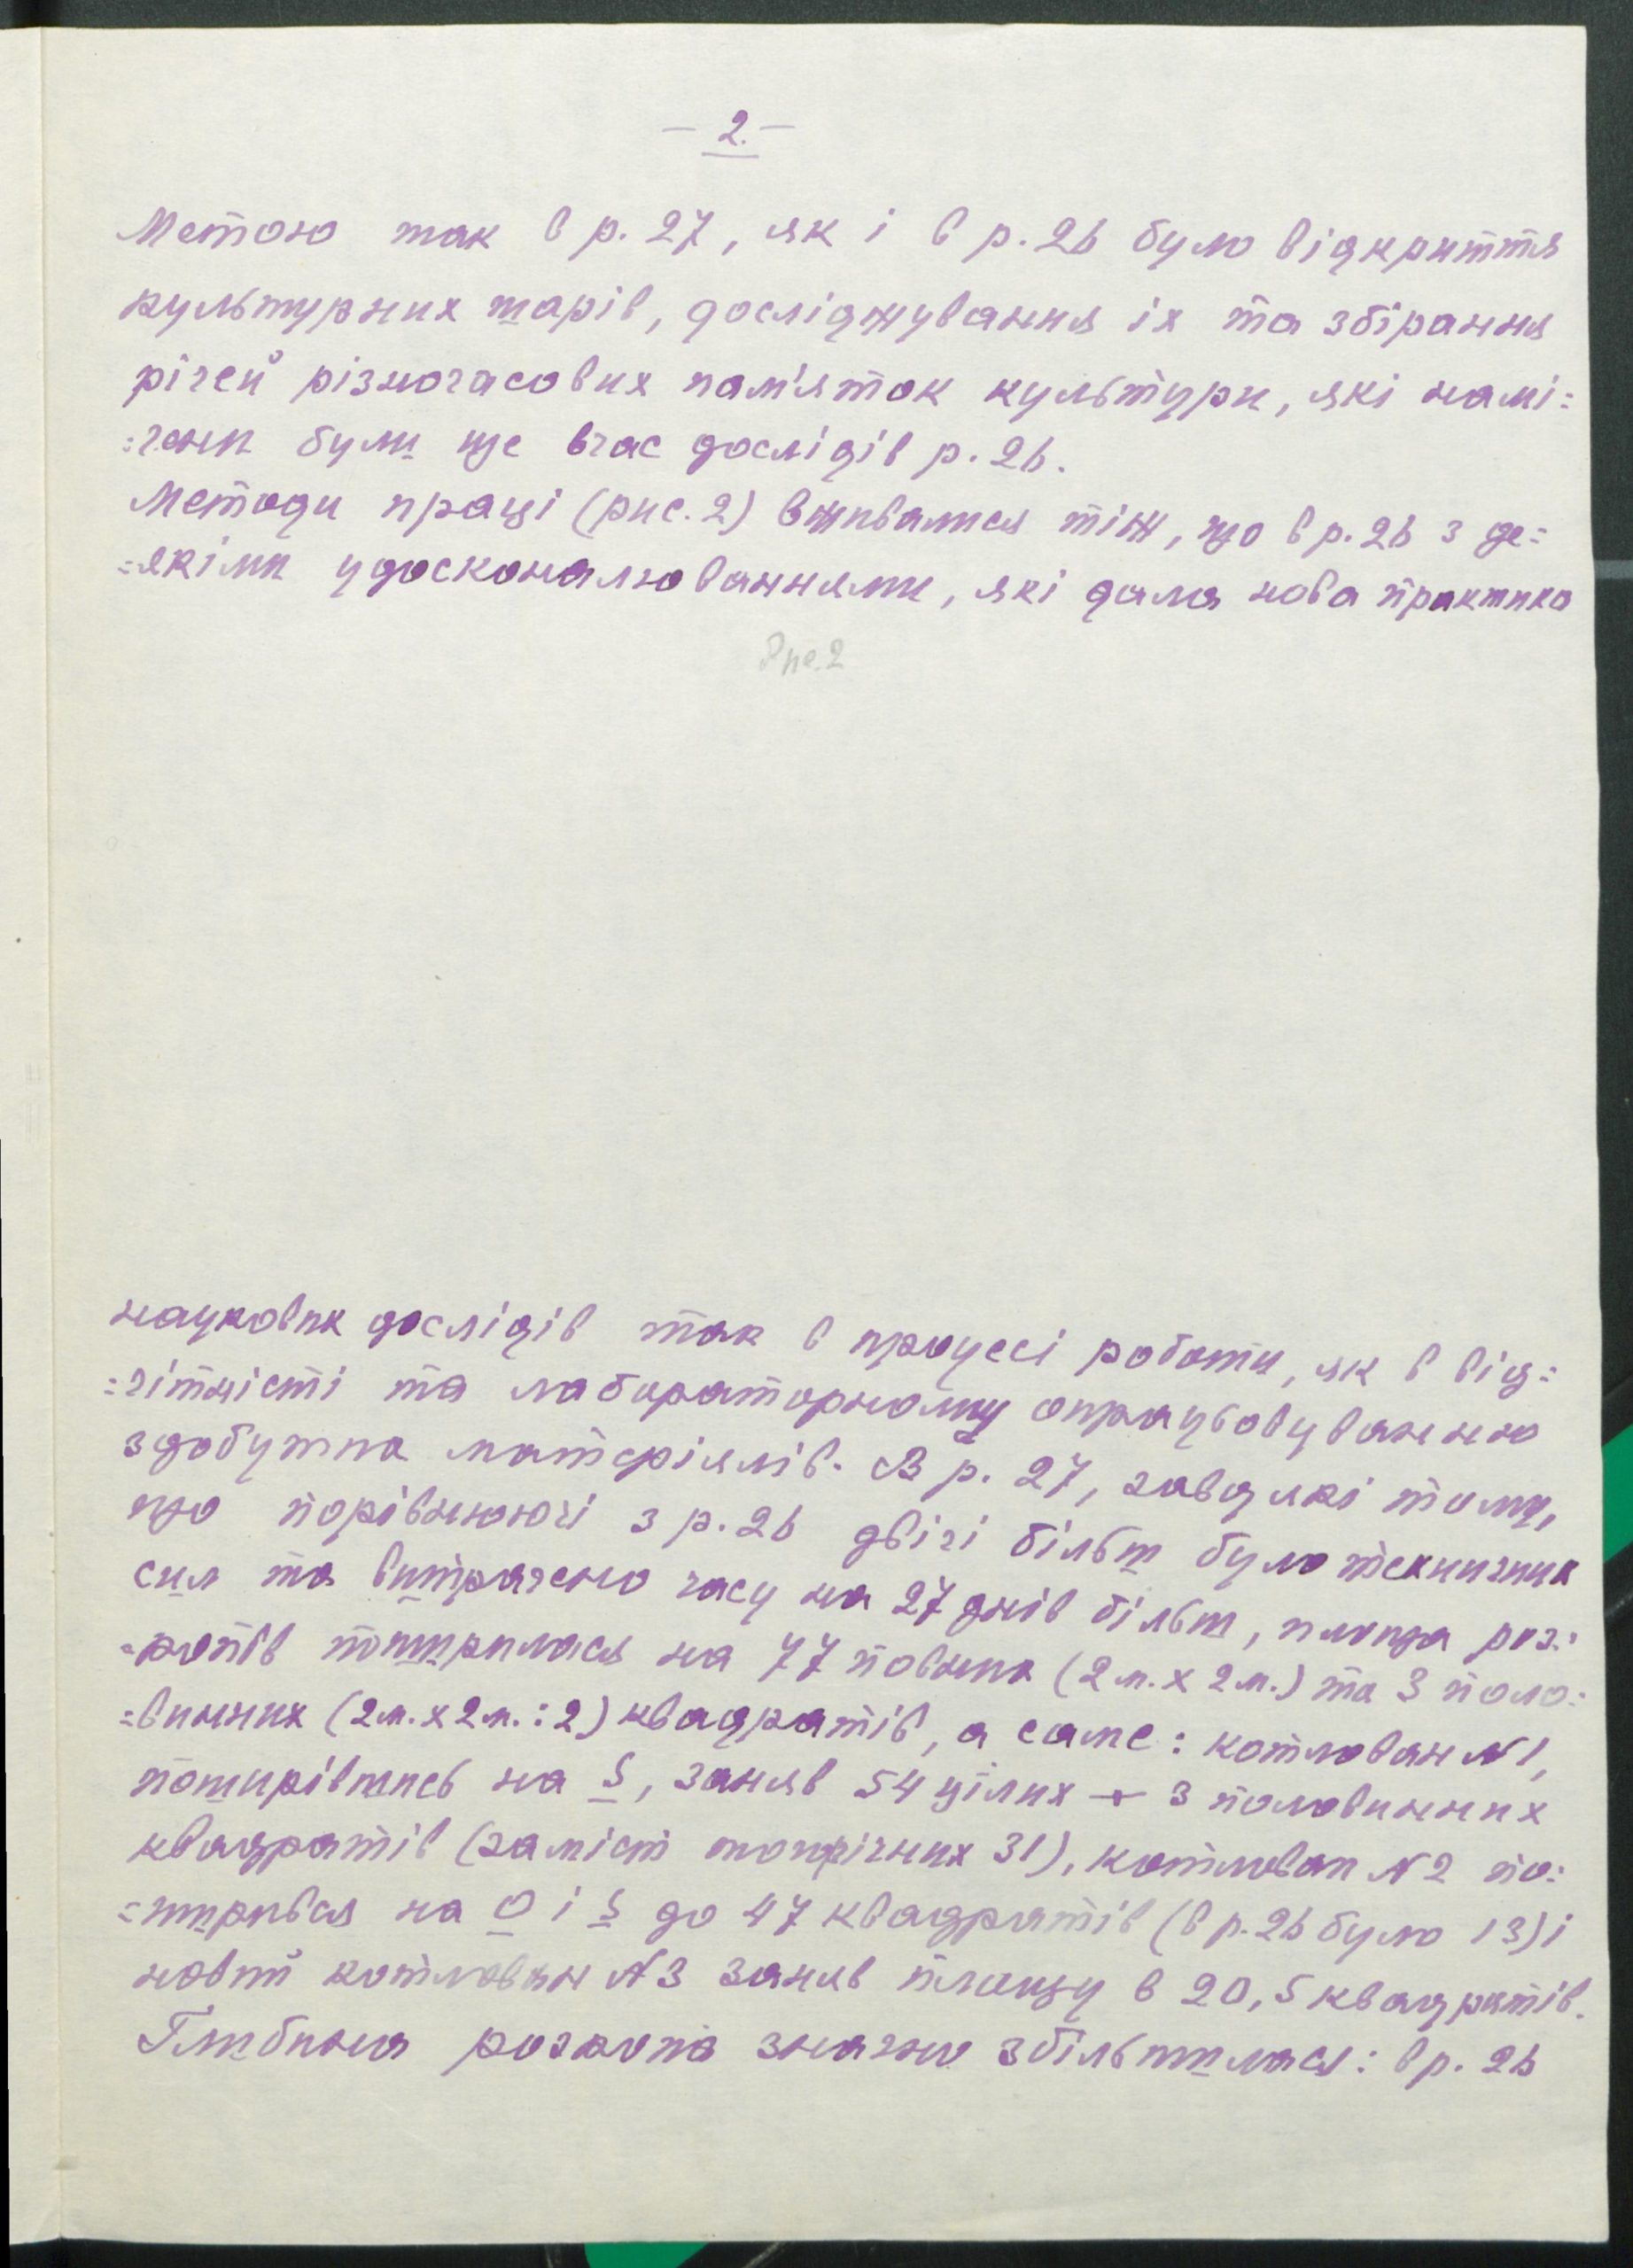 – 2. –
Метою так в р. 27, як і в р. 26 було відкриття
культурних шарів, досліджування іх та збірання
річей різночасових пам'яток культури, які намі=
=чени були ще вчас дослідів р. 26.
Методи праці (рис. 2) вживалися тіж, що в р. 26 з де=
=якіми удосконалюваннями, які дала нова практика
Рис. 2
наукових дослідів так в процесі роботи, як в від=
=чітністі та лабораторному опрацьовуванню
здобутих матеріялів. В р. 27, завдякі тому,
що порівнюючі з р. 26 двічі більш було технічних
сил та витрачено часу на 27 днів більш, площа роз=
=копів поширилася на 77 повних (2 м. х 2 м.) та 3 поло=
=винних (2 м. х 2 м. : 2) квадратів, а саме: котлован N 1,
поширівшись на S, заняв 54 цілих + 3 половинних
квадратів (замість торічних 31), котлован N 2 по=
=ширився на O і S до 47 квадратів (в р. 26 було 13) і
новий котлован N 3 заняв площу в 20,5 квадратів.
Глибина розкопів значно збільшилася: в р. 26